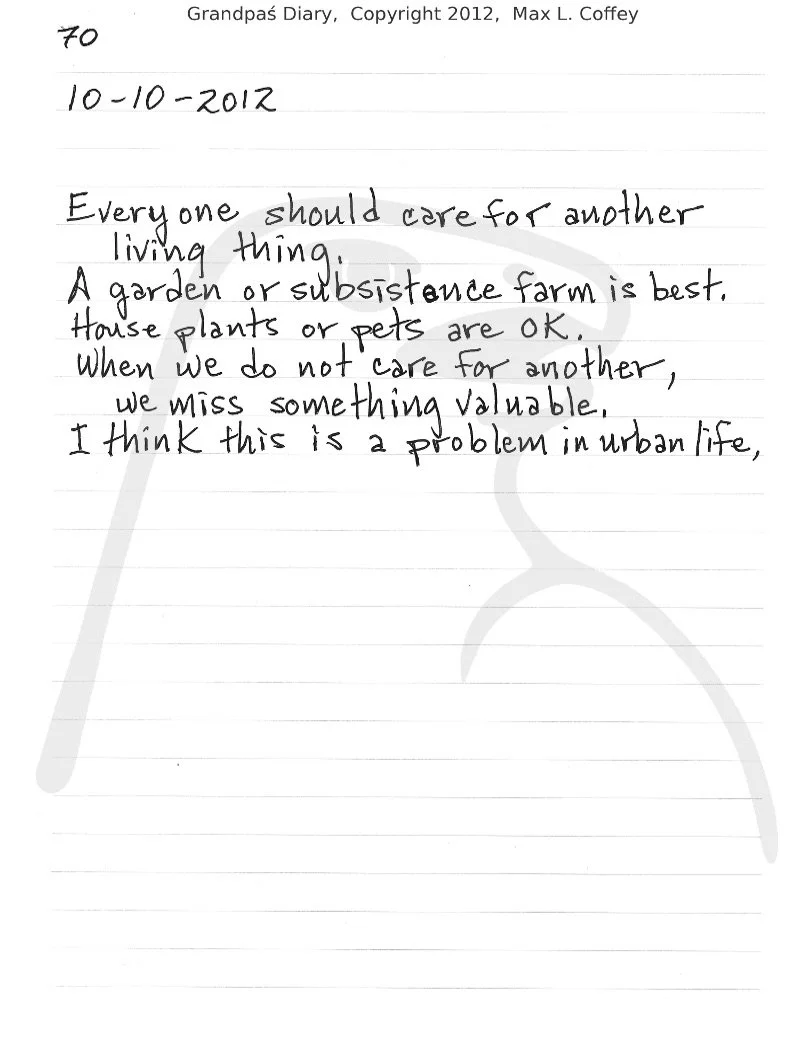 Grandpaś Diary, Copyright 2012, Max L. Coffey
70
10-10-2012
Every one should care for another
living thing.
A garden or subsistence farm is best.
House plants or pets are OK.
When we do not care for another,
we miss something valuable.
I think this is a problem in urban life,